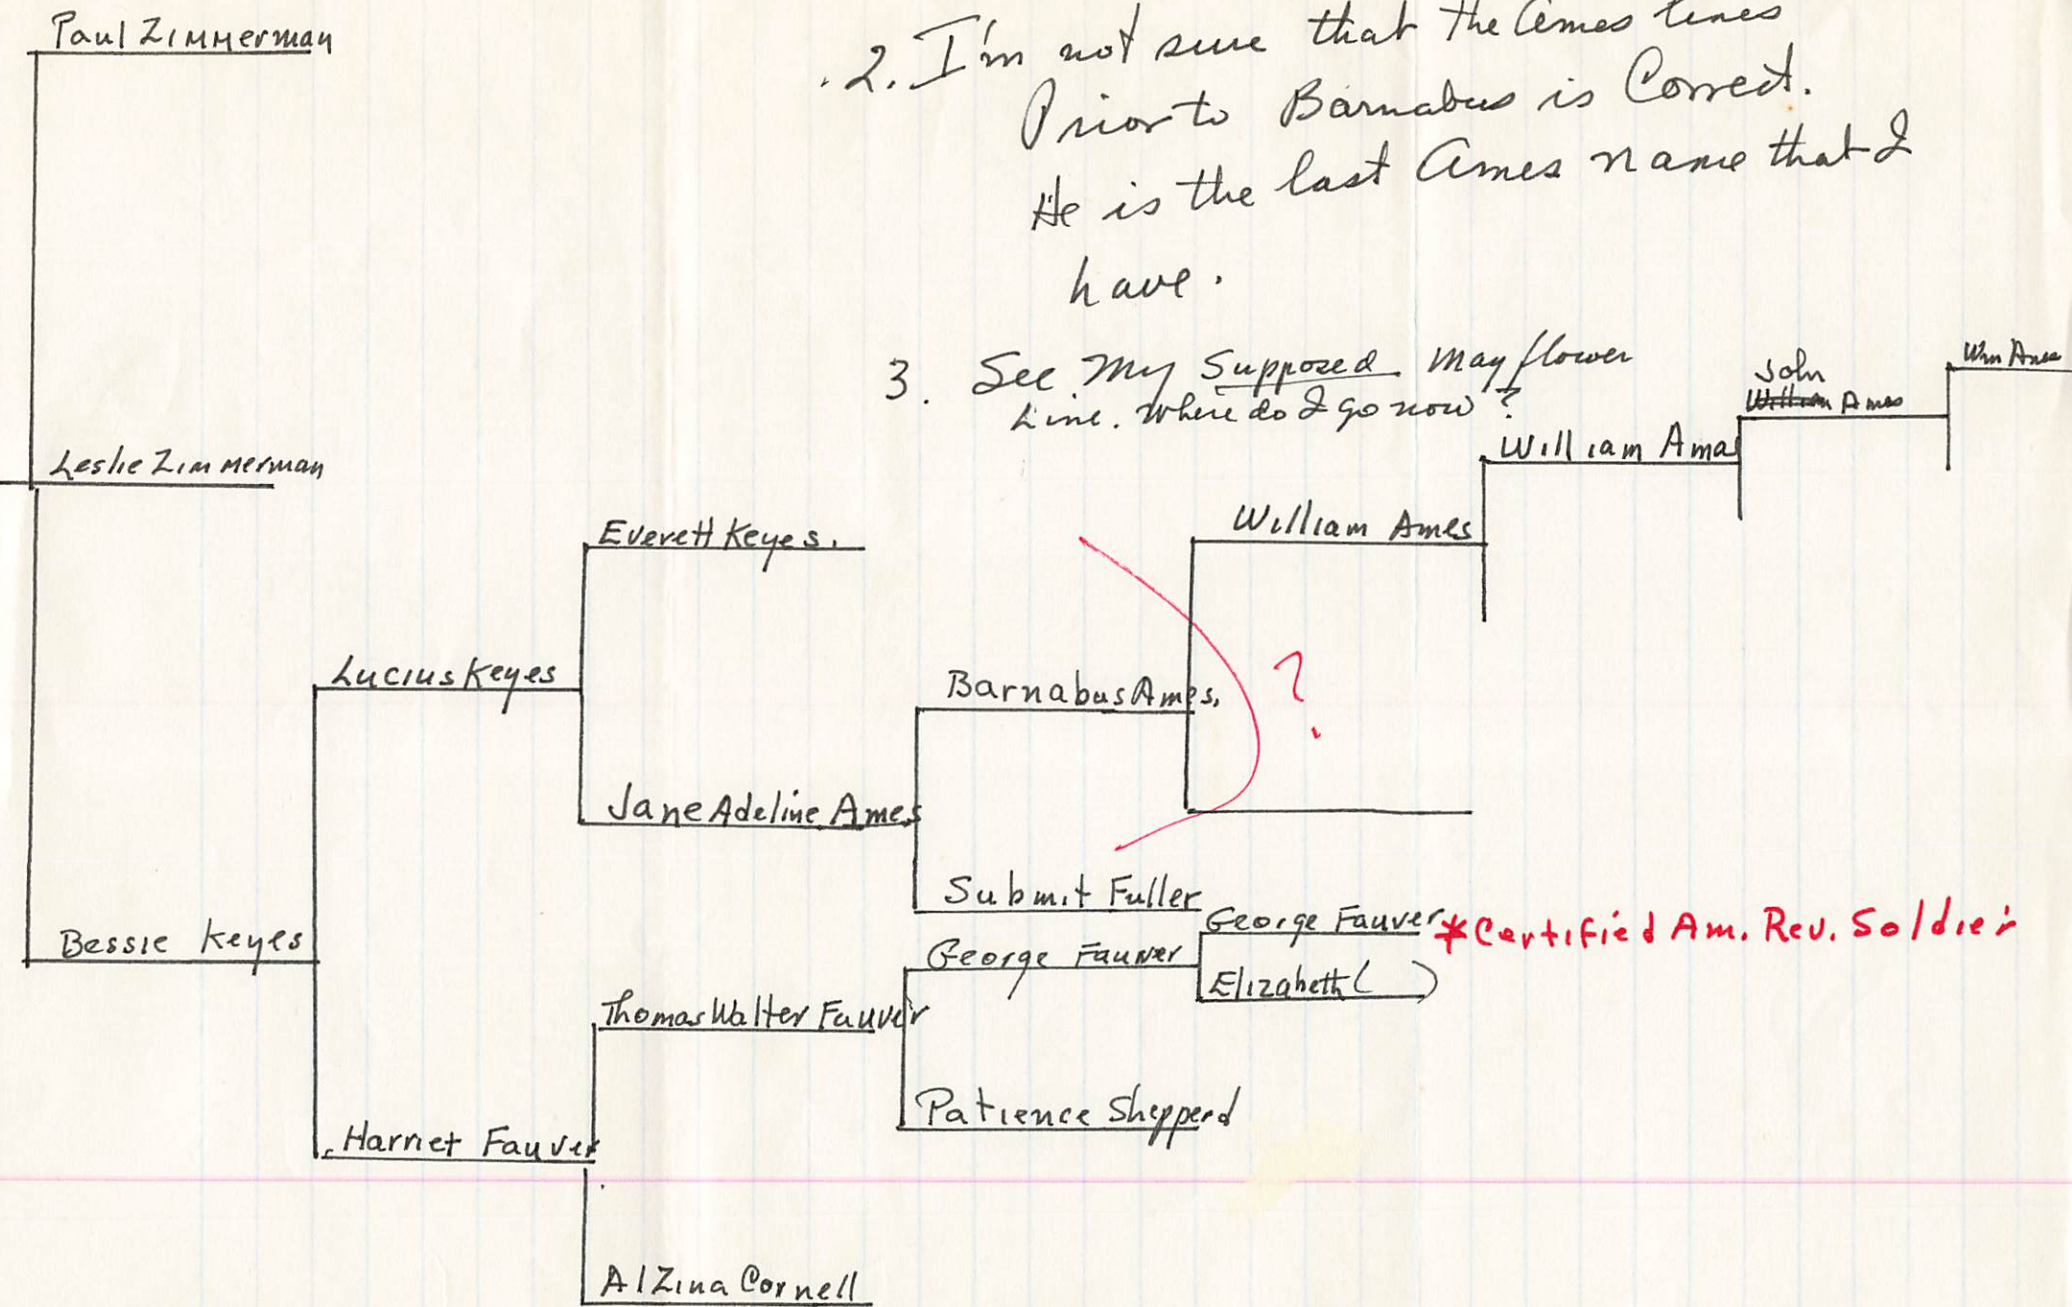 Paul Zimmerman
2. I'm not sure that the Ames lines
Prior to Barnabus is Correct.
He is the last Ames name that I
have.
3. See My Supposed Mayflower
Line. Where do I go now?
Wm Ames
John
William Ames
William Ama
Leslie Zimmerman
William Ames
Everett Keyes.
?
Lucius Keyes
Barnabus Ames.
Jane Adeline Ames
Submit Fuller
George Fauver *Certified Am. Rev. Soldier
Bessie Keyes
George Fauver
Elizabeth ( )
Thomas Walter Fauver
Patience Shepperd
Harriet Fauver
AlZina Cornell